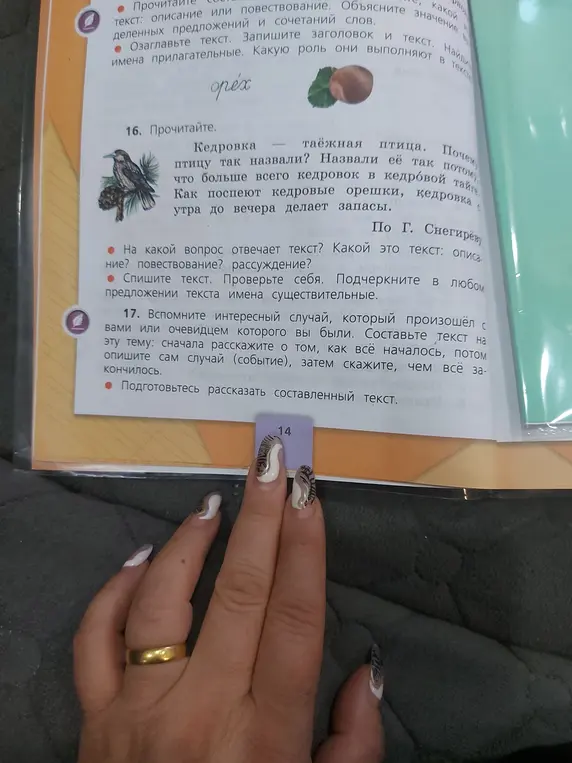 • Прочитайте
текст: описание или повествование. Объясните значение
деленных предложений и сочетаний слов.
• Озаглавьте текст. Запишите заголовок и текст.
имена прилагательные. Какую роль они выполняют в
орех
16. Прочитайте.
Кедровка — таёжная птица. Почему
птицу так назвали? Назвали её так потому,
что больше всего кедровок в кедро́вой тайге.
Как поспеют кедровые орешки, кедровка с
утра до вечера делает запасы.
По Г. Снегирёву
• На какой вопрос отвечает текст? Какой это текст: описа-
ние? повествование? рассуждение?
• Спишите текст. Проверьте себя. Подчеркните в любом
предложении текста имена существительные.
17. Вспомните интересный случай, который произошёл с
вами или очевидцем которого вы были. Составьте текст на
эту тему: сначала расскажите о том, как всё началось, потом
опишите сам случай (событие), затем скажите, чем всё за-
кончилось.
• Подготовьтесь рассказать составленный текст.
14